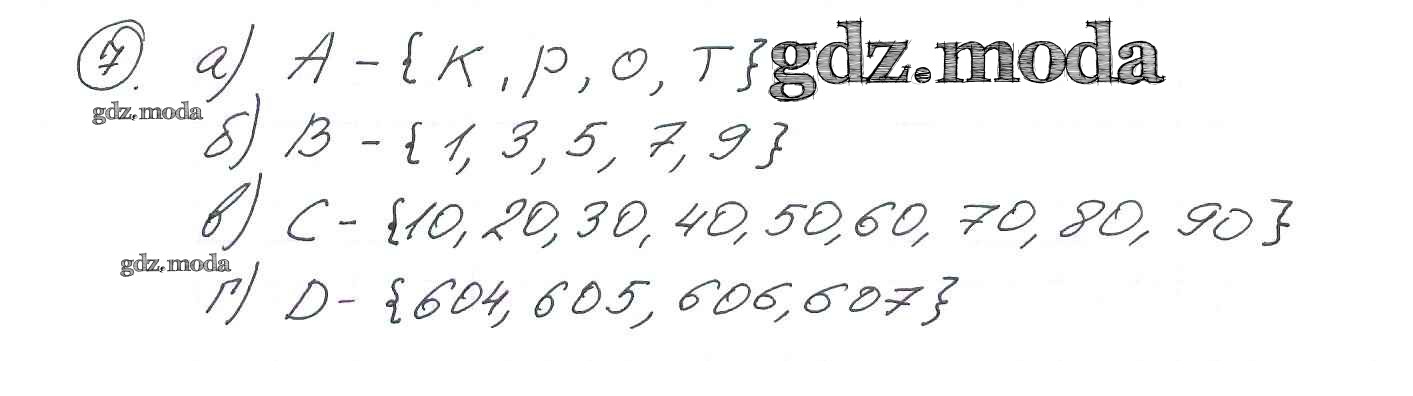 7. а) A - {к, р, о, т} gdz.moda
gdz.moda
б) B - {1, 3, 5, 7, 9}
в) C - {10, 20, 30, 40, 50, 60, 70, 80, 90}
gdz.moda
г) D - {604, 605, 606, 607}